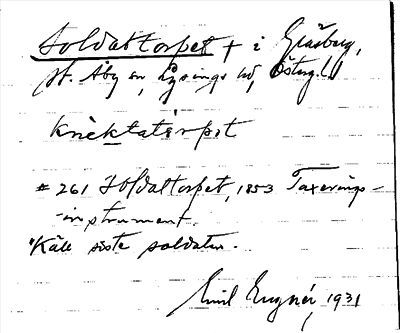 Soldattorpet + i Gråberg,
St. Åby sn, Lysings hd, Österg. l.
knèktatòrpət
# 261 Soldattorpet, 1853 Taxerings-
-instrument.
"Källe siste soldaten.
Emil Eugnér, 1931